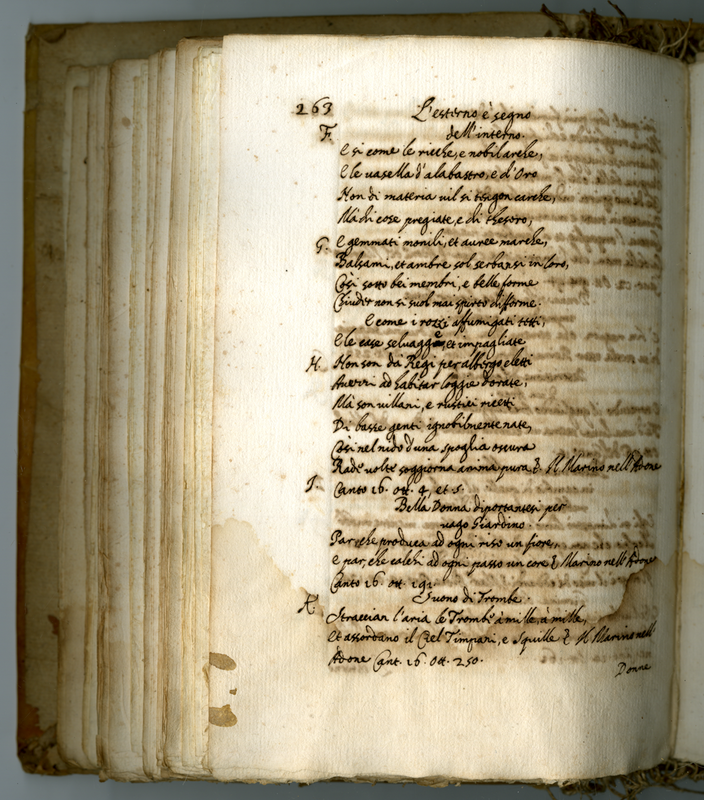 263 L'esterno è segno
F. dell'interno.
E si come le ricche, e nobil arche,
E le vasella d'alabastro, e d'Oro
Non di materia vil si tengon carche,
Mà di cose pregiate, e di thesoro,
G. E gemmati monili, et auree marche,
Balsami, et ambre sol serbansi in loro,
Così sotto bei membri, e belle forme
Chiuder non si suol mai spirto difforme.
E come i rozzi affumigati tetti,
E le case selvagge et impagliate
H. Non son da Regi per albergo eletti
Avezzi ad habitar loggie dorate,
Mà son villani, e rustici ricetti
Di basse genti ignobilmente nate,
Così nel nido d'una spoglia oscura
Rade volte soggiorna anima pura &. Il Marino nell'Adone
I. Canto 16. ott. 4, et 5.
Bella Donna diportantesi per
vago Giardino.
Par, che produca ad ogni riso un fiore,
e par, che calchi ad ogni passo un core & Marino nell'Adone
Canto 16. ott. 191.
K. Suono di Trombe.
Straccian l'aria le Trombe à mille, à mille,
Et assordano il Ciel Timpani, e Squille &. Il Marino nell'
Adone Cant. 16. Ott. 250.
Donne